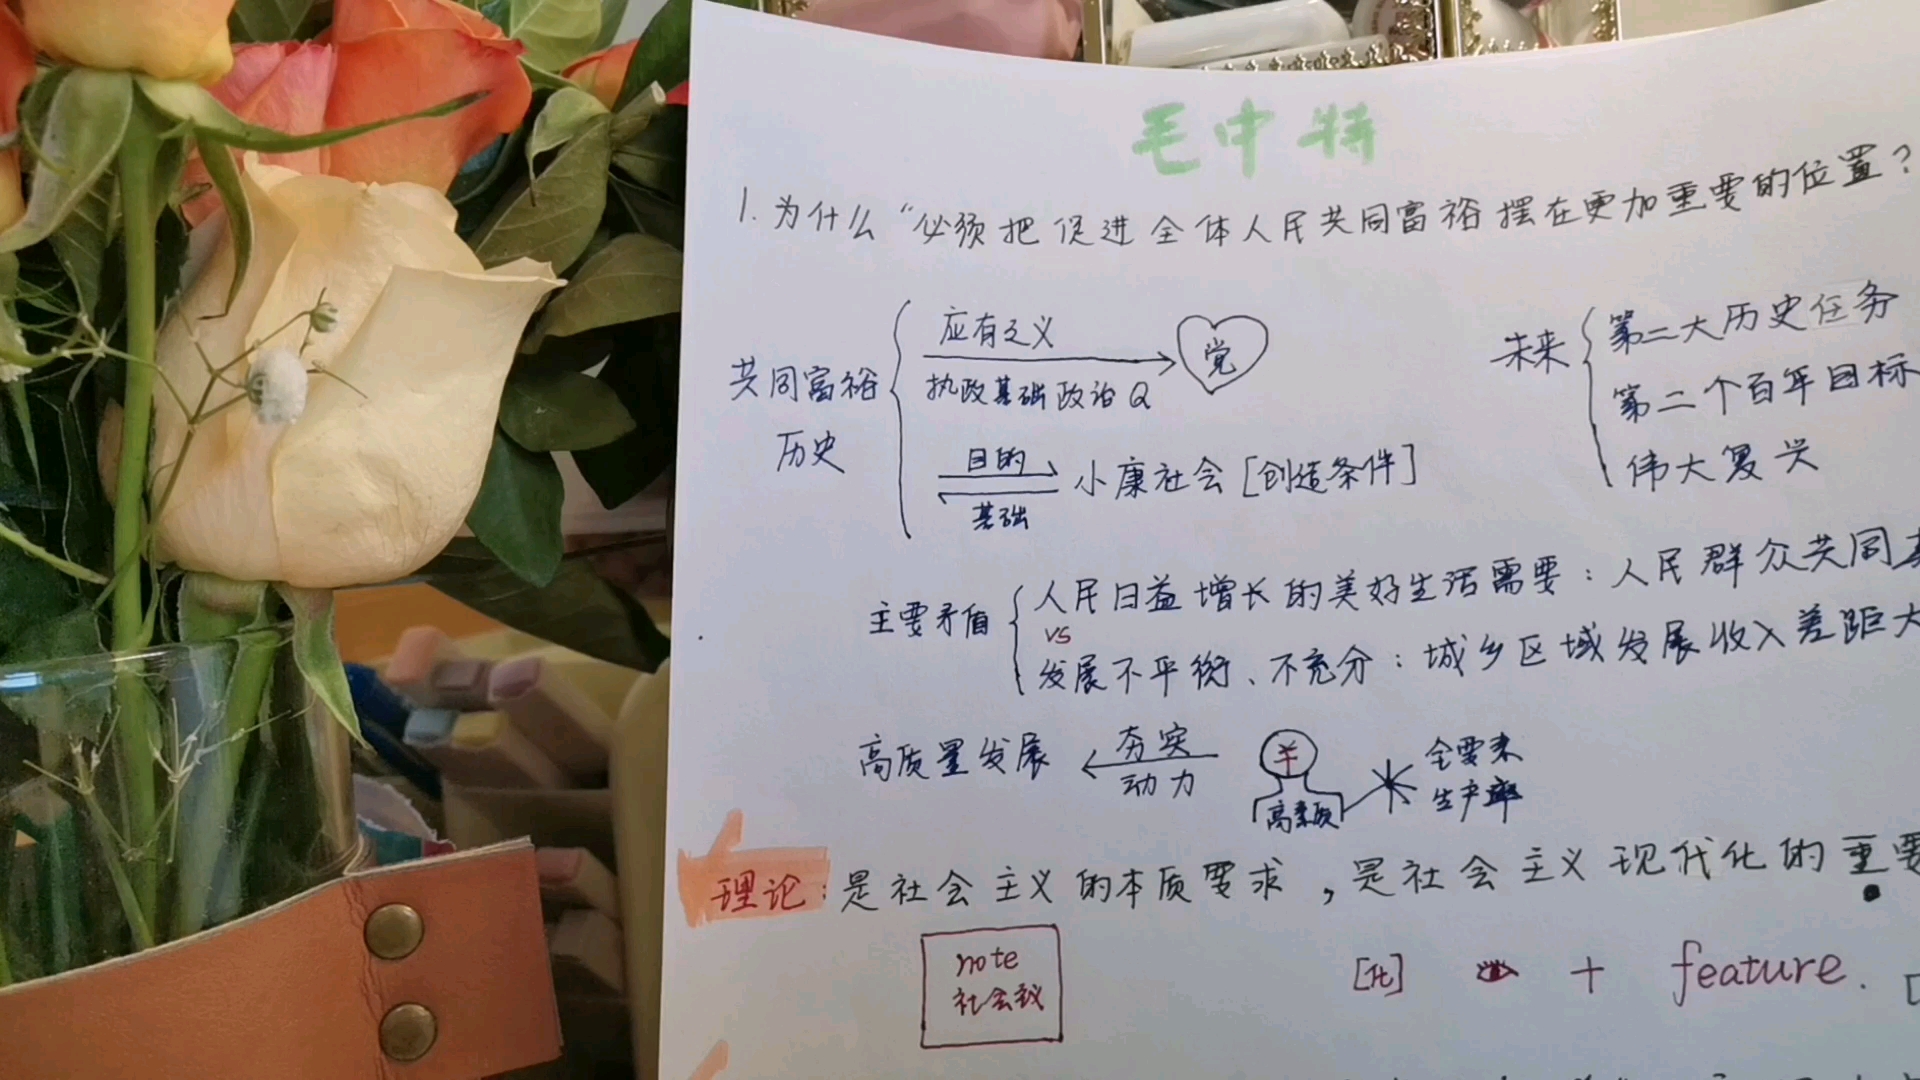 毛中特
1. 为什么“必须把促进全体人民共同富裕摆在更加重要的位置?
共同富裕
历史
应有之义
执政基础政治Q
党
目的
基础
小康社会[创造条件]
未来
第二大历史任务
第二个百年目标
伟大复兴
主要矛盾
人民日益增长的美好生活需要:人民群众共同
vs
发展不平衡、不充分:城乡区域发展收入差距大
高质量发展
夯实
动力
羊
高素质
全要素
生产率
理论:是社会主义的本质要求,是社会主义现代化的重要
note
社会主义
[化]
+ feature.